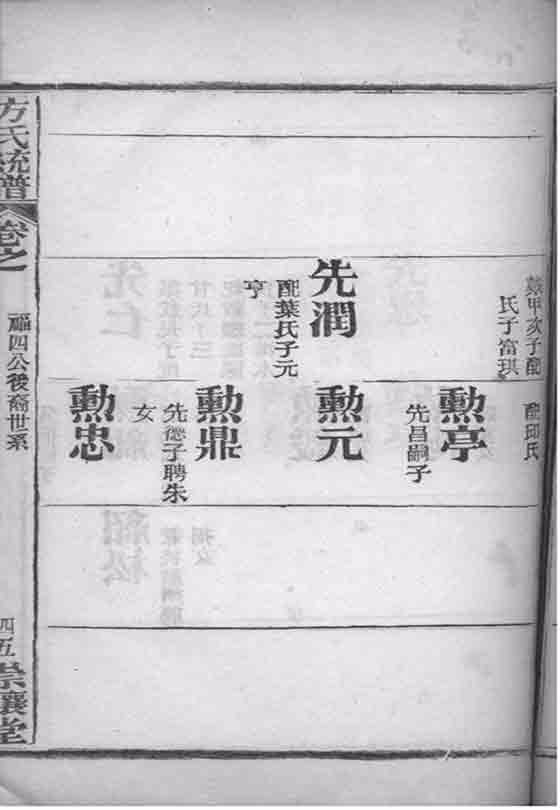 甲次子配
氏子富琪
配邱氏
先潤
配葉氏子元
亨
勲亭
先昌嗣子
勲元
勲鼎
先德子聘朱
女
勲忠
方氏統譜
卷之一
福四公後裔世系
四五
崇讓堂